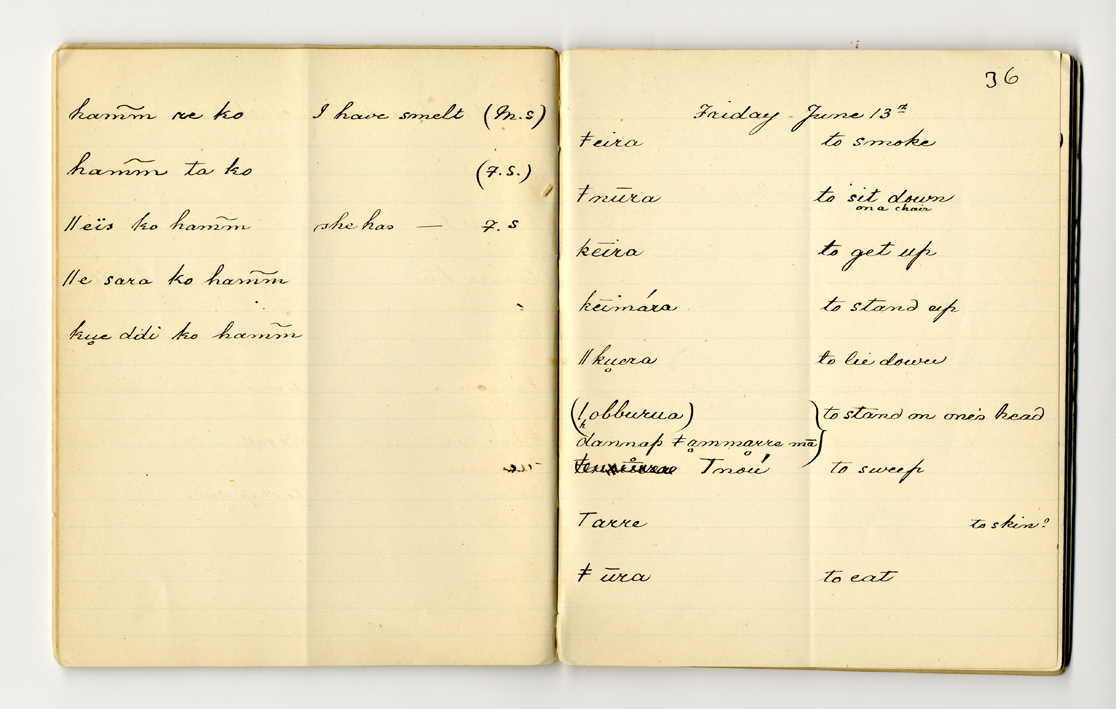 ham̃m re ko I have smelt (M.S)
ham̃m ta ko (F.S.)
ǁeïs ko ham̃m she has — F.S
ǁe sara ko ham̃m
ku̥e didi ko ham̃m
36
Friday - June 13th
ǂeira to smoke
ǂnūra to sit down
on a chair
kēira to get up
kēimára to stand up
ǁku̥era to lie down
to stand on one's head
dannap ǂḁmmḁrre mā
Tnoú to sweep
Tarre to skin?
ǂ ūra to eat